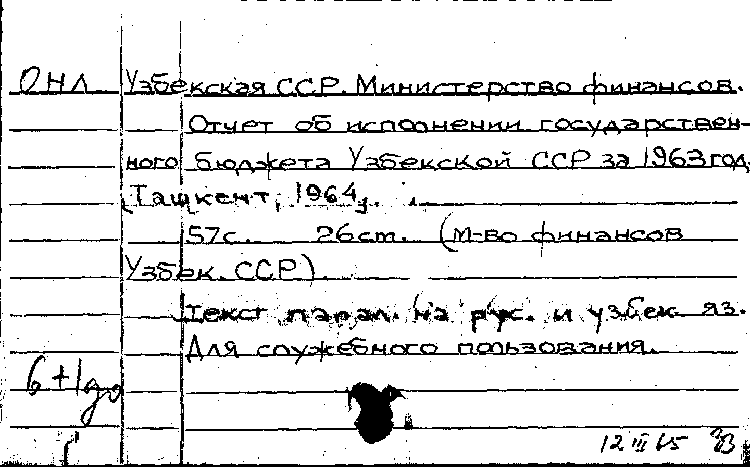 ОНЛ Узбекская ССР. Министерство финансов.
Отчет об исполнении государствен-
ного бюджета Узбекской ССР за 1963 год.
Ташкент, 1964.
57с. 26см. (М-во финансов
Узбек. ССР).
Текст парал. на рус. и узбек. яз.
Для служебного пользования.
6+1
12 III 65